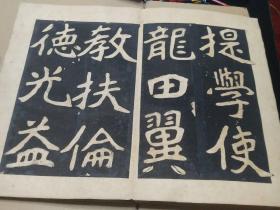 提學使
龍田翼
教扶倫
德光益